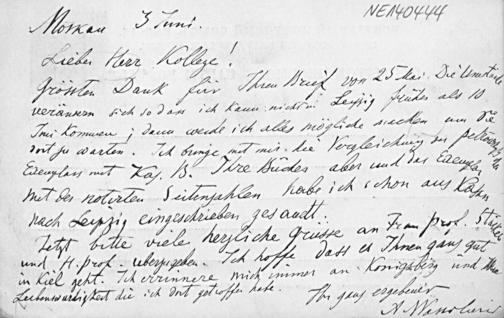 NE140444
Moskau 3 Juni.
Lieber Herr Kollege!
Grössten Dank für Ihren Brief von 25 Mai. Die Umstände
verändern sich so dass ich kann nicht in Leipzig früher als 10
Juni kommen; dann werde ich alles mögliche suchen um die
dort zu warten. Ich bringe mit mir die Vergleichung des
Exemplars mit Kas. B. Ihre aber und das Exemplar
mit den notirten Seitenzahlen habe ich schon aus Kasan
nach Leipzig eingeschrieben gesandt.
Jetzt bitte viele herzliche Grüsse an Frau prof.
und H. prof. übergeben. Ich hoffe dass es Ihnen ganz gut
in Kiel geht. Ich errinnere mich immer an Königsberg und
Liebenswürdigkeit die ich dort getroffen habe.
Ihr ganz ergebener